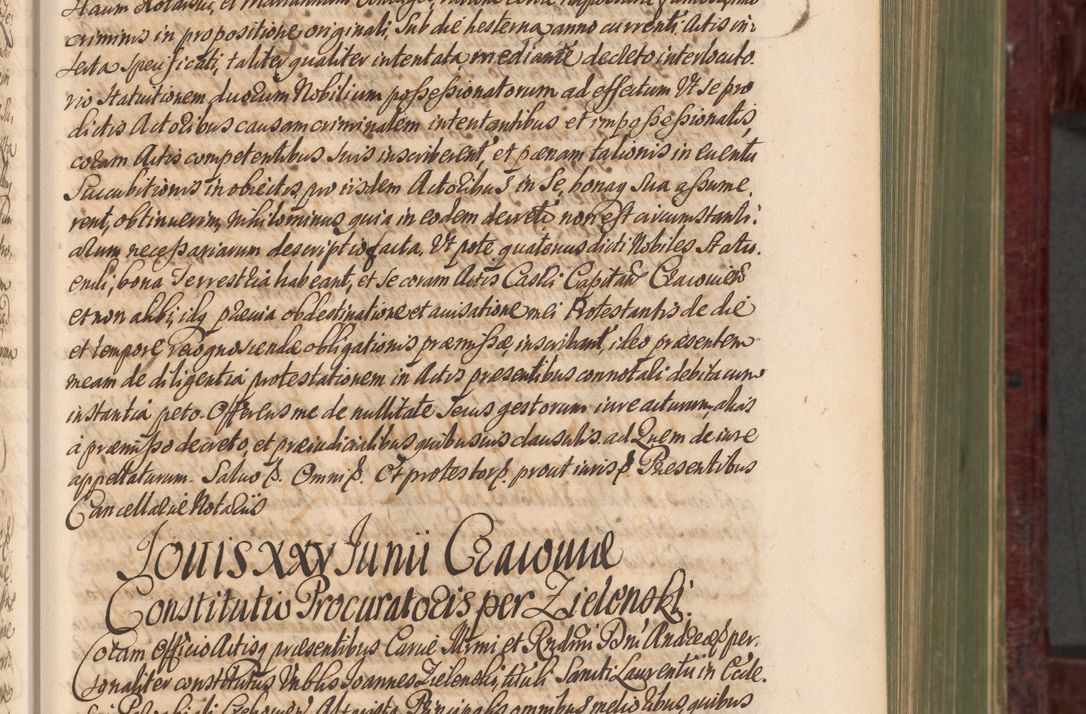 criminis in propositione originali, Sub die hesterna anno currenti Actis in:
serta Specificati, taliter qualiter intentata mediante decreto interlocuto.
rio Statuitionem, duorum Nobilium possessionatorum ad effectum Vt se pro
dictis Actoribus causam criminalem intentantibus et impossessionatis,
coram Actis competentibus suis inscriberent, et pœnam talionis in euentu
Succubitionis in obiectis, pro iisdem Actoribus in Se, bonaq Sua assume.
rent, obtinuerim, nihilominus quia in eodem decreti, non est circumstanti:
arum necessariarum descriptio facta, Vt pote quatenus dicti Nobiles Statu
endi, bona Terrestria habeant, et se coram Actis Castri Capitan Cracouien
et non alibi, idq prævia obdestinatione et auisatione mei Protestantis de die
et tempore recognoscendæ obligationis præmissæ, inscribant, ideo præsentem
meam de diligentia protestationem in Actis præsentibus connotari debita cum
instantia peto. Offerens me de nullitate Secus gestorum iure acturum, aliis
à præmisso decreto, et præiudicialibus quibusuis clausulis. ad Quem de iure
appellaturum. Saluo p. Omni p. Et protestor p. prout iuris p. Præsentibus
Cancellariæ Notariis
Jouis XXV Junii Cracouiæ
Constitutio Procuratoris per Zielenski.
Coram Officio Actisq præsentibus Curiæ Illmi et Rndmi Dni Andreæ p per:
sonaliter constitutus Vnblis Joannes Zielenski, tituli Sancti Laurentii in Eccle.